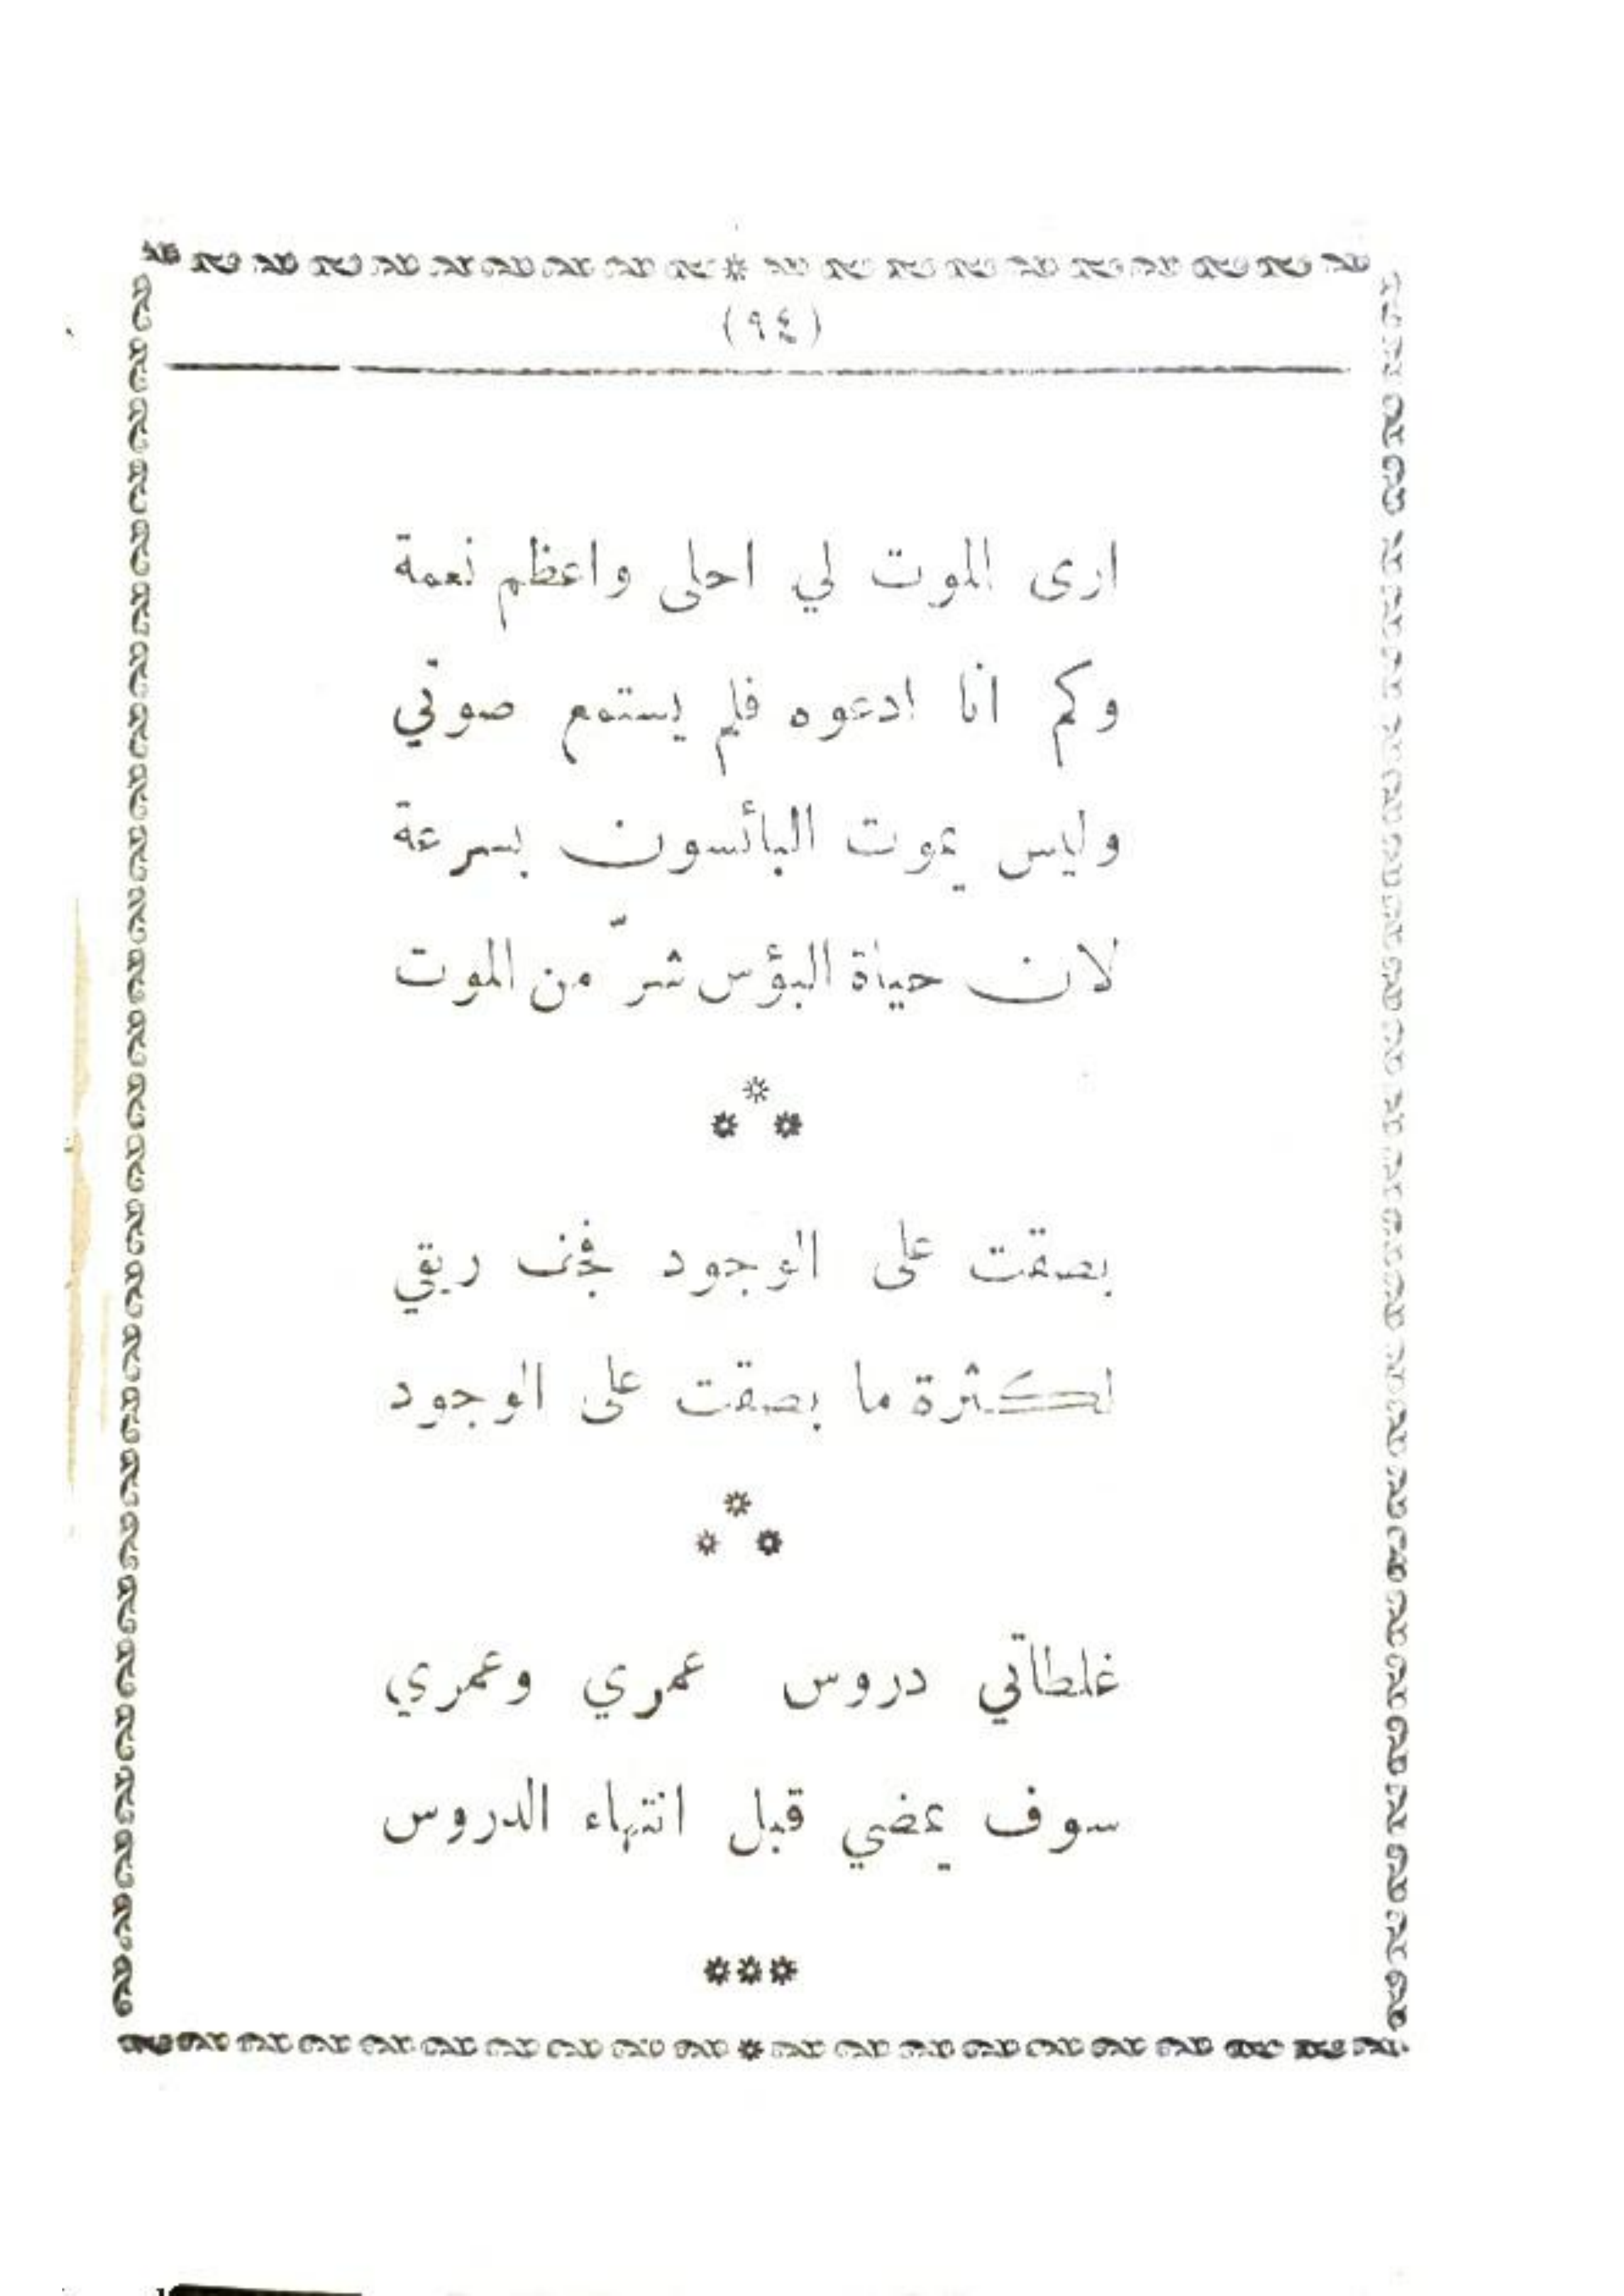 (٩٤)
ارى الموت لي احلى واعظم نعمة
وكم انا ادعوه فلم يستمع صوتي
وليس يموت البائسون بسرعة
لان حياة البؤس شرّ من الموت
بصقت على الوجود فجف ريقي
لكثرة ما بصقت على الوجود
غلطاتي دروس عمري وعمري
سوف يمضي قبل انتهاء الدروس